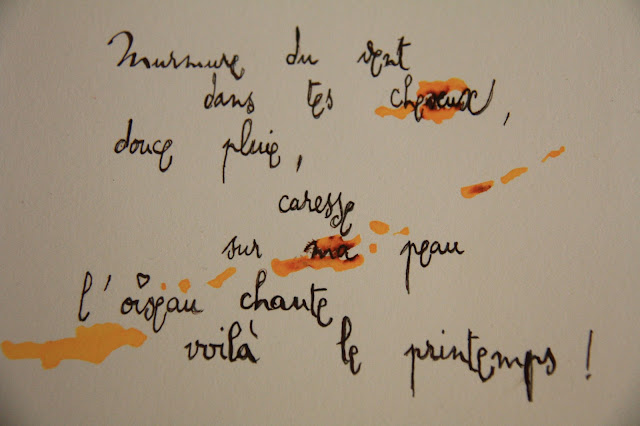 Murmure du vent
dans tes cheveux,
douce pluie,
caresse
sur ma peau
l'oiseau chante
voilà le printemps !